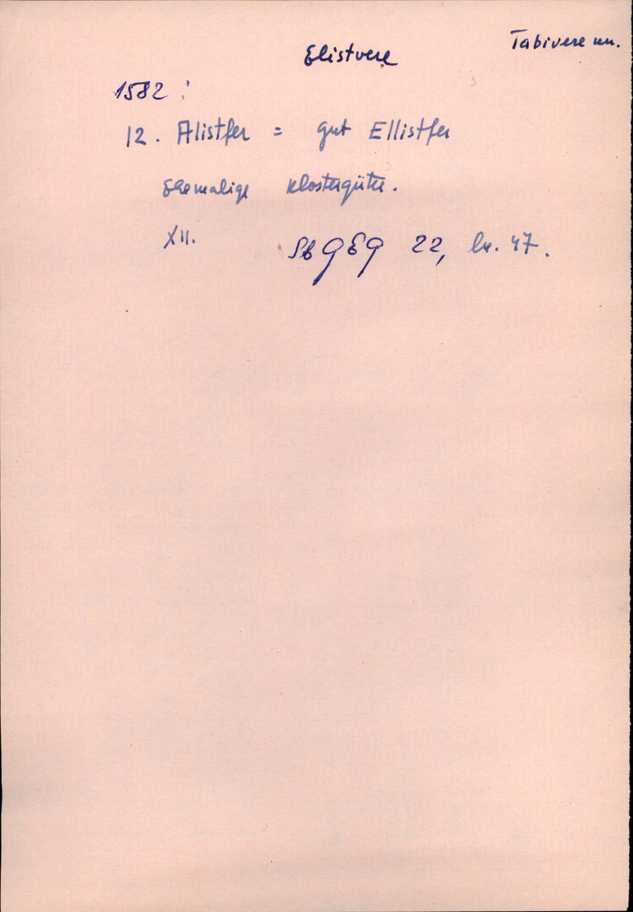 Elistvere
Tabivere kn.
1582 :
12. Alistfer = gut Ellistfer
Ehemalige Klostergüter.
XII.
Sb GEG 22, lk. 47.